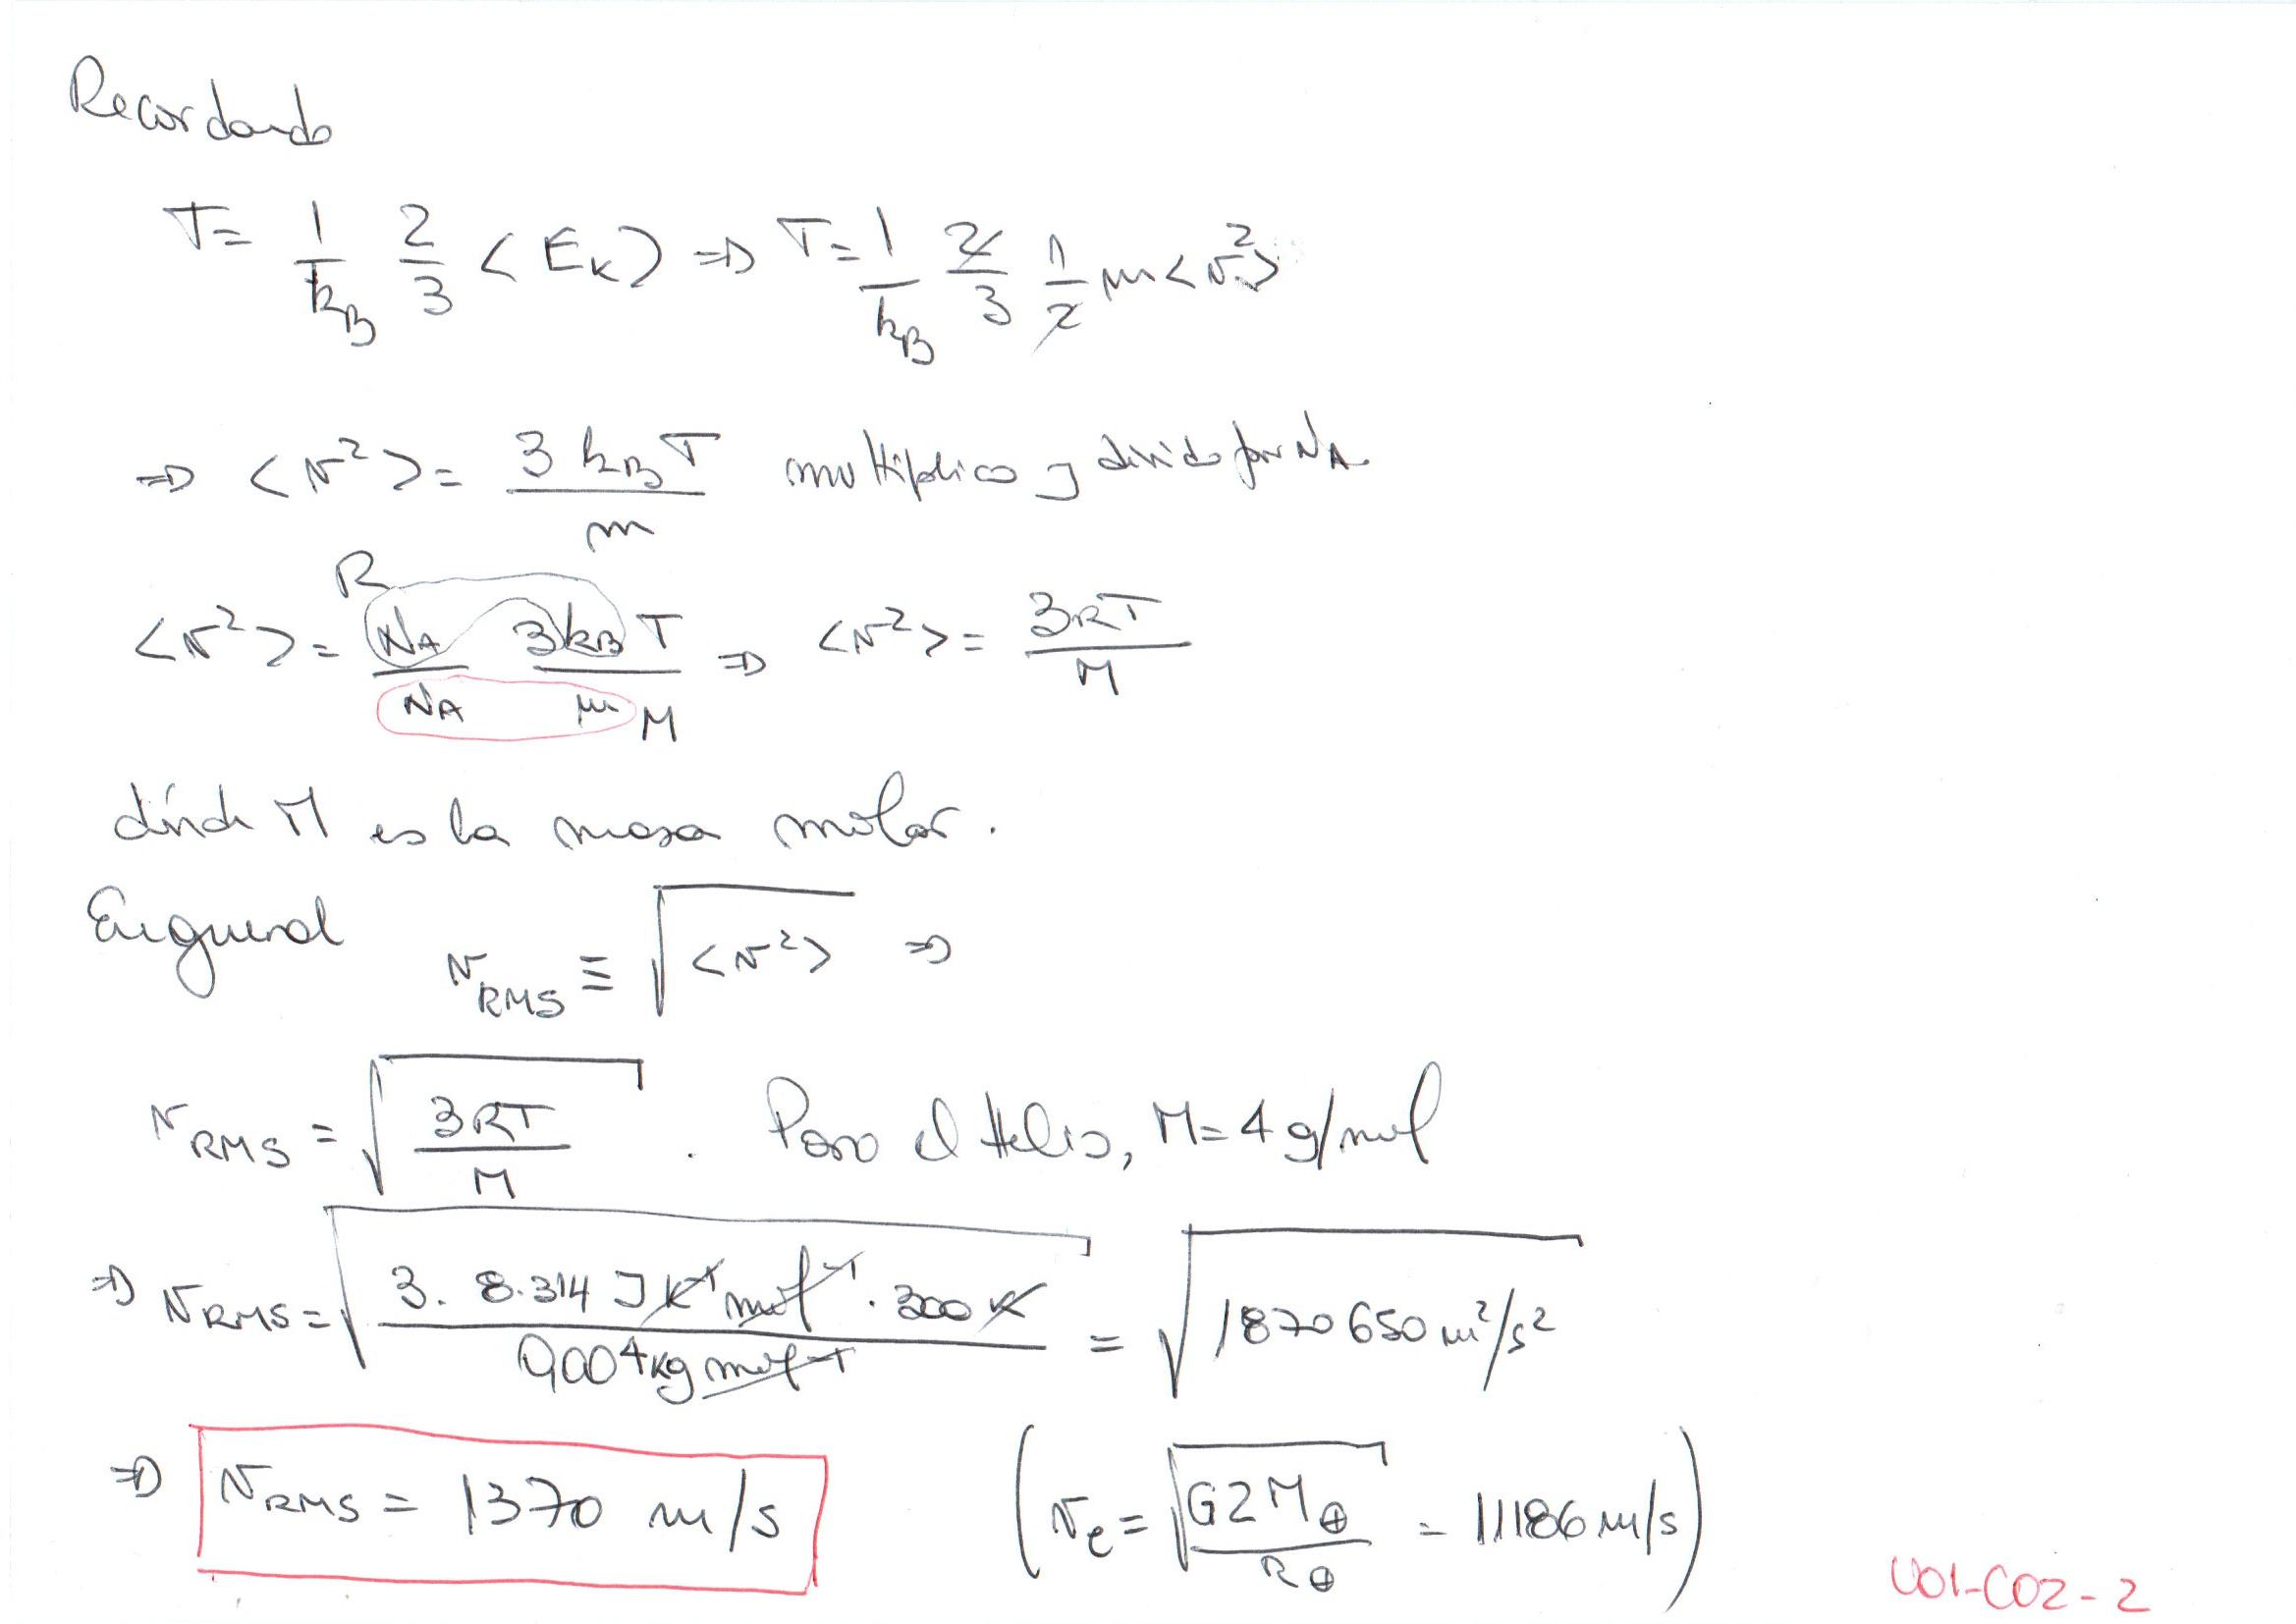 Recordando
T = 1/k_B 2/3 <E_K> ⇒ T = 1/k_B 2/3 1/2 m <v²>
⇒ <v²> = 3 k_B T / m multiplico y divido por N_A
R
<v²> = N_A/N_A 3 k_B T / m M ⇒ <v²> = 3RT / M
dónde M es la masa molar.
En general v_RMS ≡ √<v²> ⇒
v_RMS = √(3RT / M) . Para el Helio, M = 4 g/mol
⇒ v_RMS = √(3 . 8.314 J K⁻¹ mol⁻¹ . 300 K / 0,004 kg mol⁻¹) = √(1870650 m²/s²)
⇒ v_RMS = 1370 m/s (v_e = √(G 2 M_⊕ / R_⊕) = 11186 m/s)
U01-C02-2